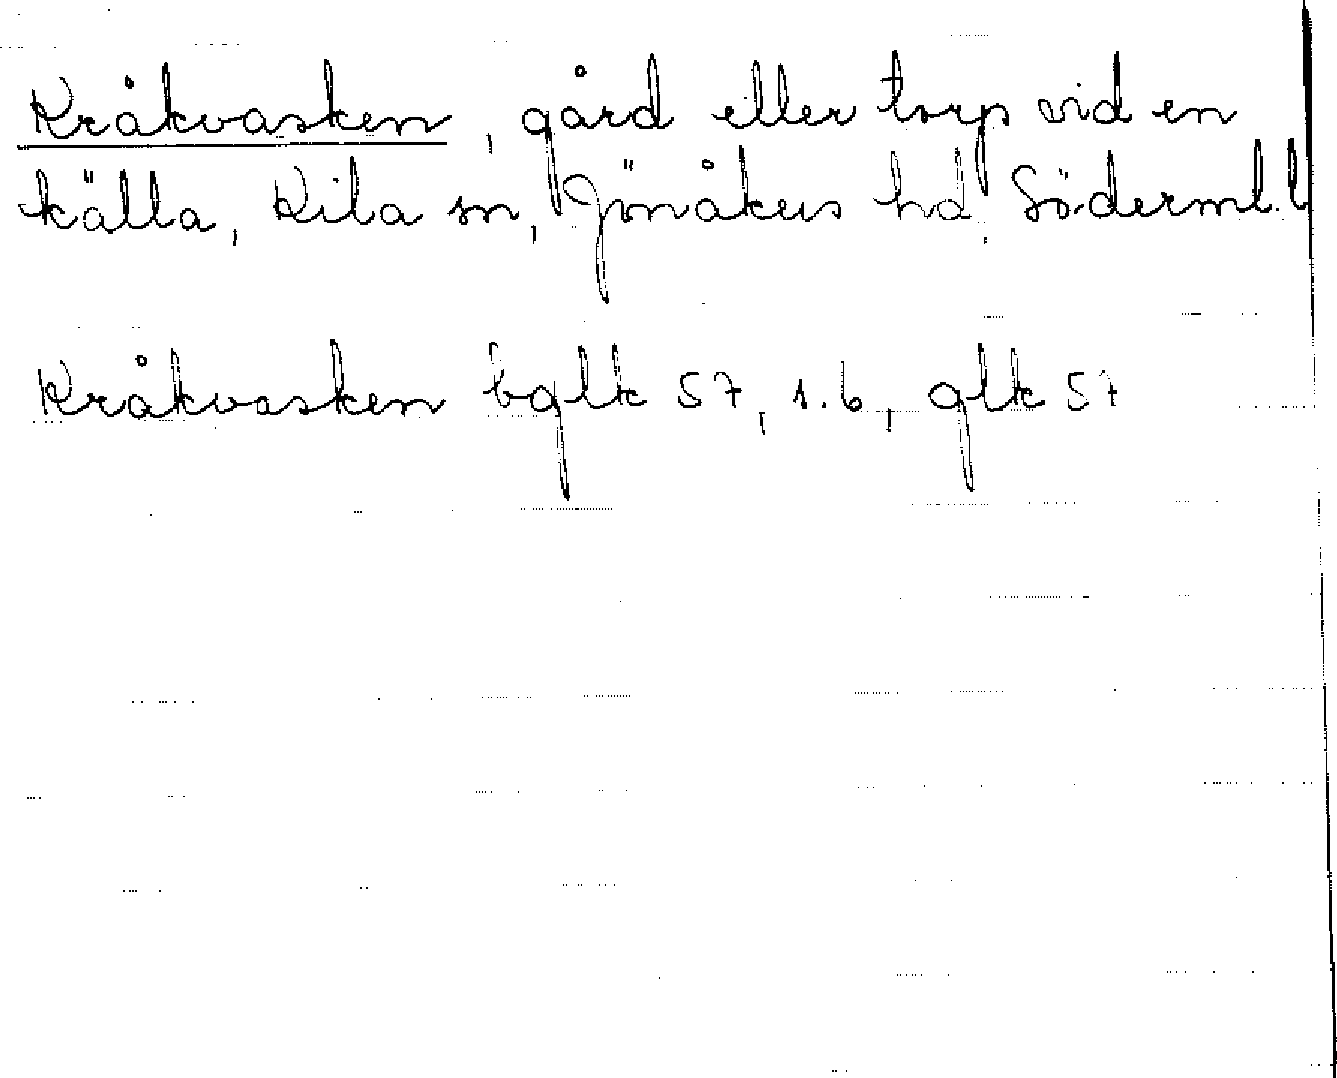 Kråkvasken, gård eller torp vid en
källa, Kila sn, Jönåkers hd, Söderml. l
Kråkvasken bglk 57, 1.b, glk 57